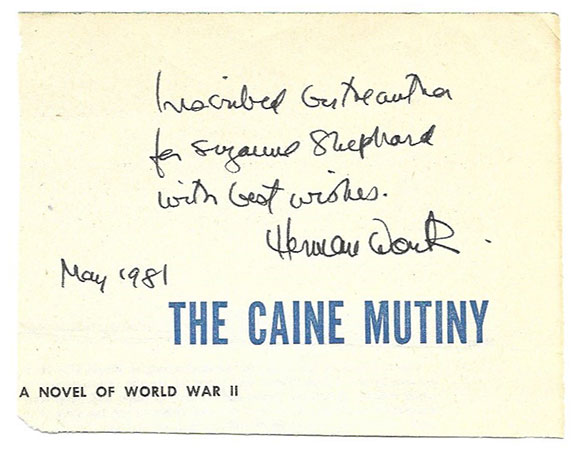 Inscribed by the author
for Suzanne Shephard
with best wishes.
Herman Wouk.
May 1981
THE CAINE MUTINY
A NOVEL OF WORLD WAR II